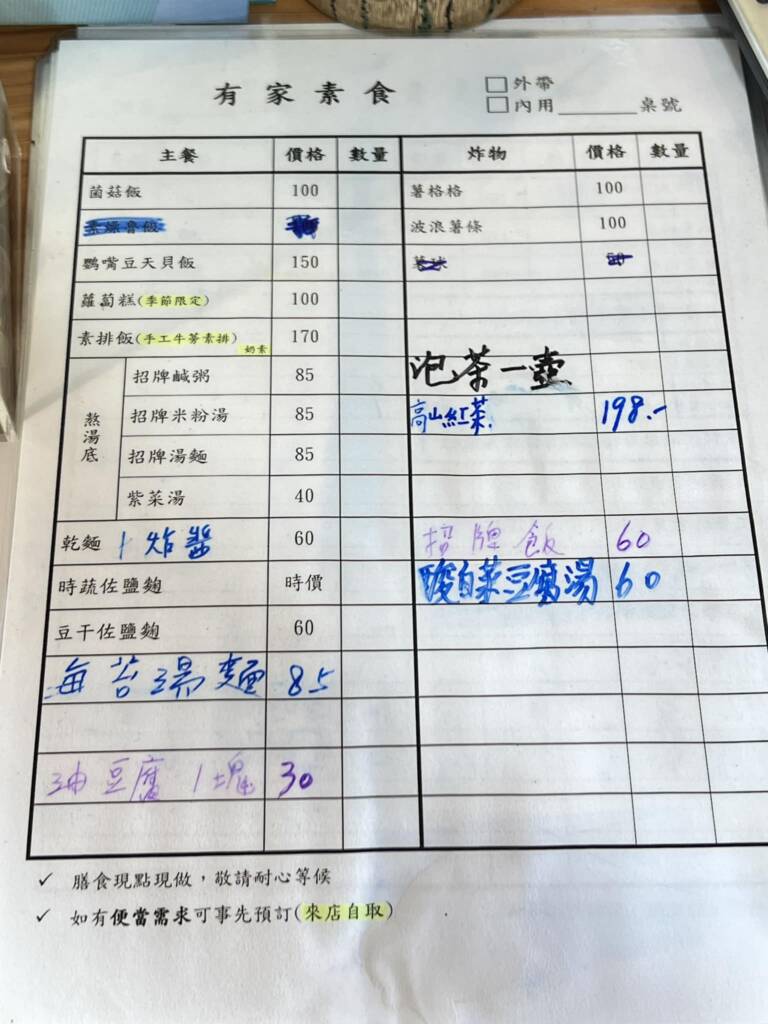 有家素食
□外帶
□內用______桌號
主餐 價格 數量 炸物 價格 數量
菌菇飯 100 薯格格 100
波浪薯條 100
鸚嘴豆天貝飯 150
蘿蔔糕(季節限定) 100
素排飯(手工牛蒡素排) 奶素 170
熬湯底
招牌鹹粥 85 泡茶一壺
招牌米粉湯 85 高山紅茶 198.-
招牌湯麵 85
紫菜湯 40
乾麵 炸醬 60 招牌飯 60
時蔬佐鹽麴 時價 酸白菜豆腐湯 60
豆干佐鹽麴 60
海苔湯麵 85
油豆腐1塊 30
✓ 膳食現點現做,敬請耐心等候
✓ 如有便當需求可事先預訂(來店自取)